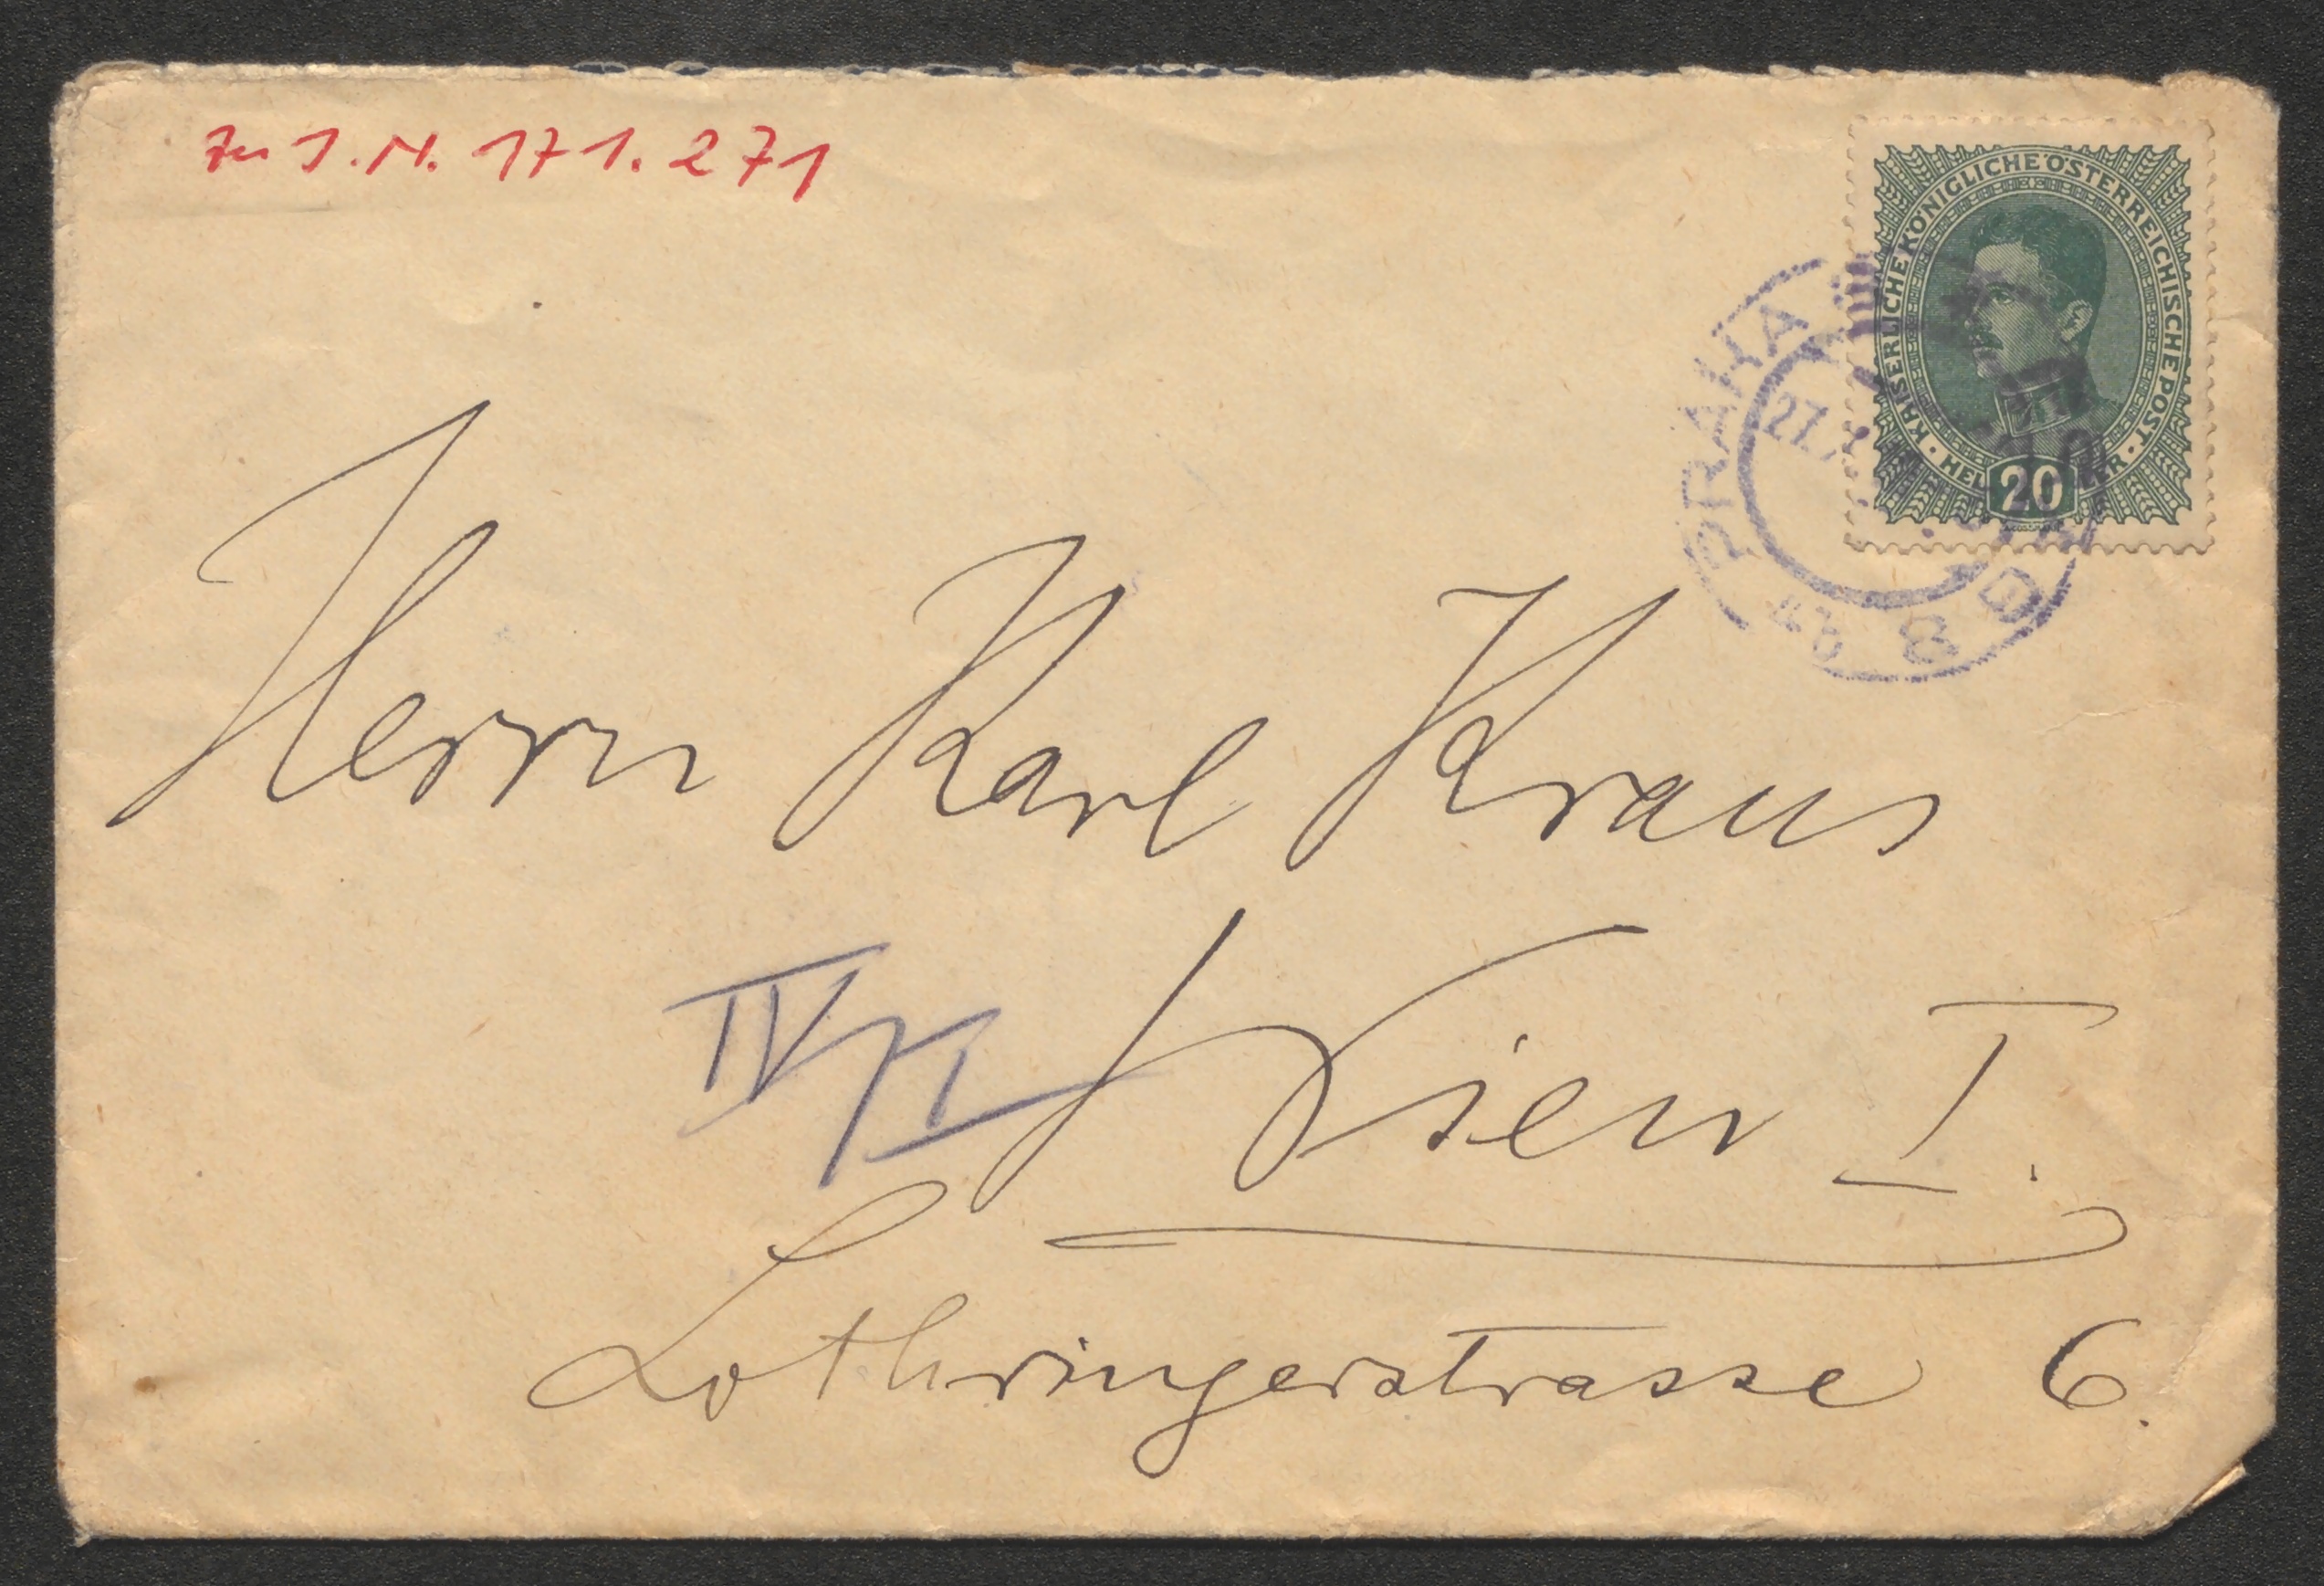 Zu I.N. 171.271
KAISERLICHE KÖNIGLICHE ÖSTERREICHISCHE POST
HELLER
20
PRAHA
27.
8
Herrn Karl Kraus
IV/I
Wien I.
Lothringerstrasse 6.